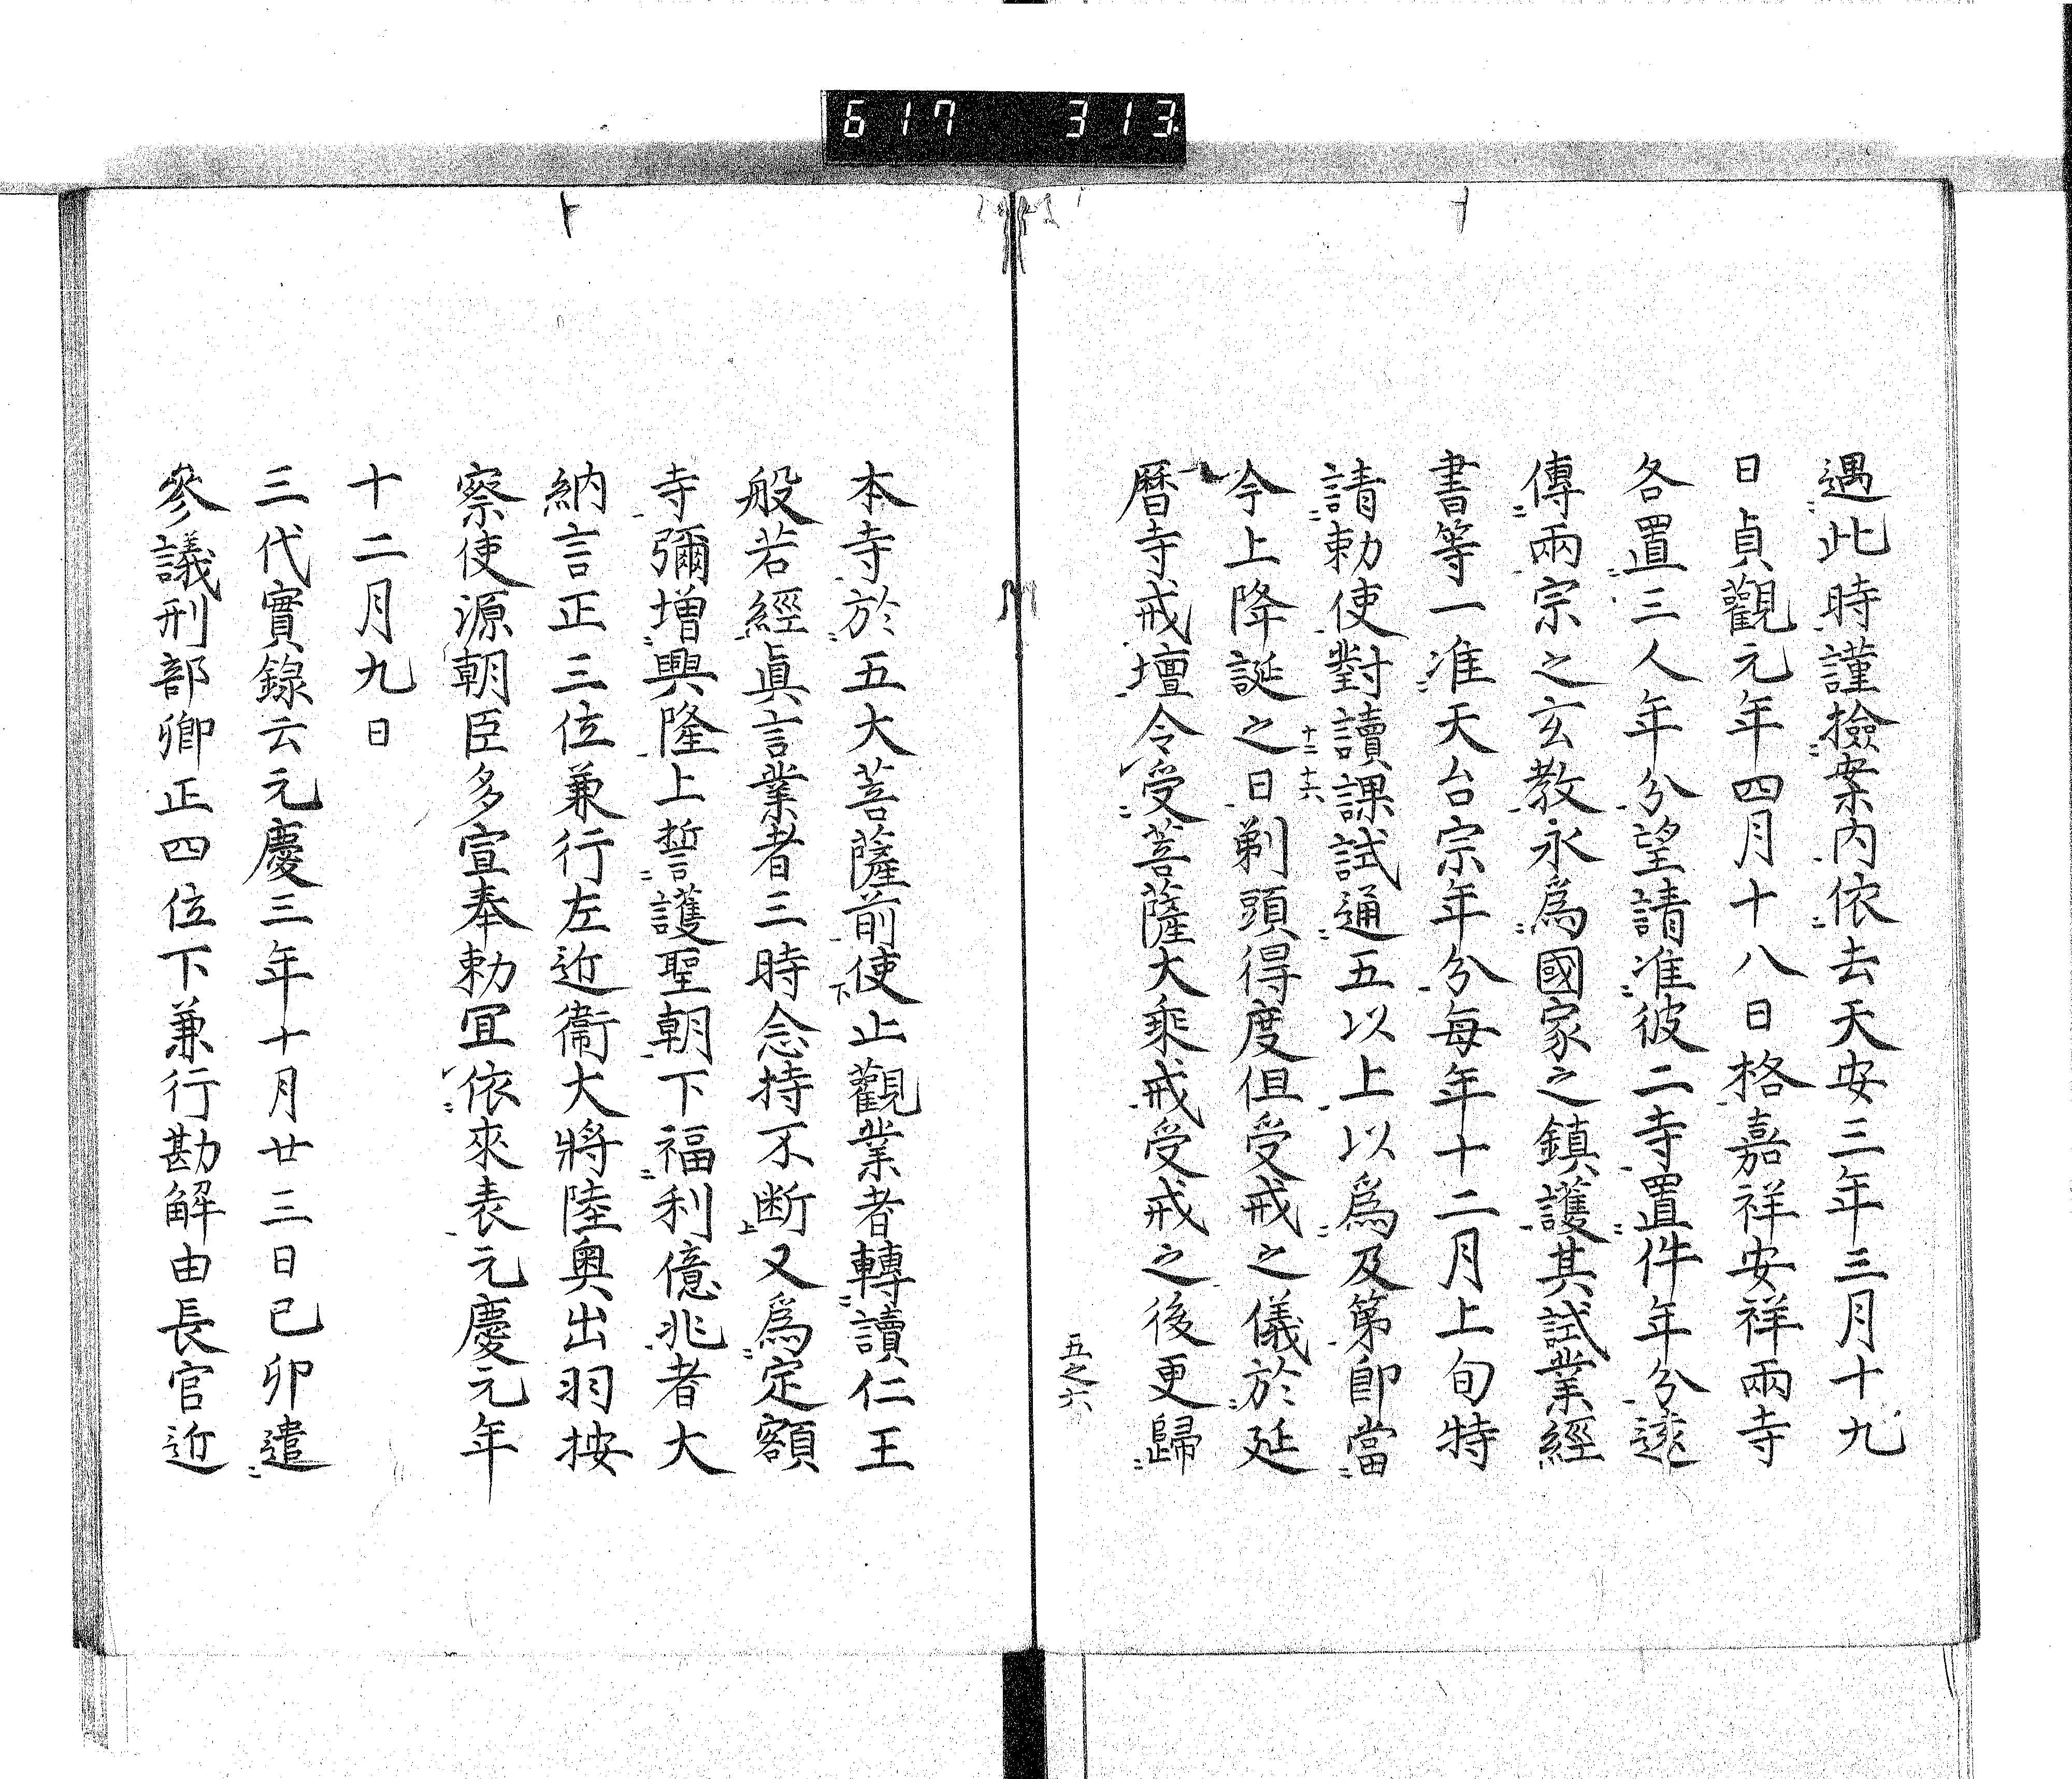 617 313
遇此時謹撿案内依去天安三年三月十九
日貞觀元年四月十八日格嘉祥安祥兩寺
各置三人年分望請准彼二寺置件年分遠
傳兩宗之玄教永爲國家之鎮護其試業經
書等一准天台宗年分每年十二月上旬特
請勅使對讀課試通五以上以爲及第即當
十二十六
今上降誕之日剃頭得度但受戒之儀於延
暦寺戒壇令受菩薩大乘戒受戒之後更歸
五之六
本寺於五大菩薩前使止觀業者轉讀仁王
下
般若經眞言業者三時念持不断又爲定額
上
寺彌增興隆上誓護聖朝下福利億兆者大
納言正三位兼行左近衞大將陸奥出羽按
察使源朝臣多宣奉勅冝依來表元慶元年
十二月九日
三代實錄云元慶三年十月廿三日己卯遣
參議刑部卿正四位下兼行勘解由長官近